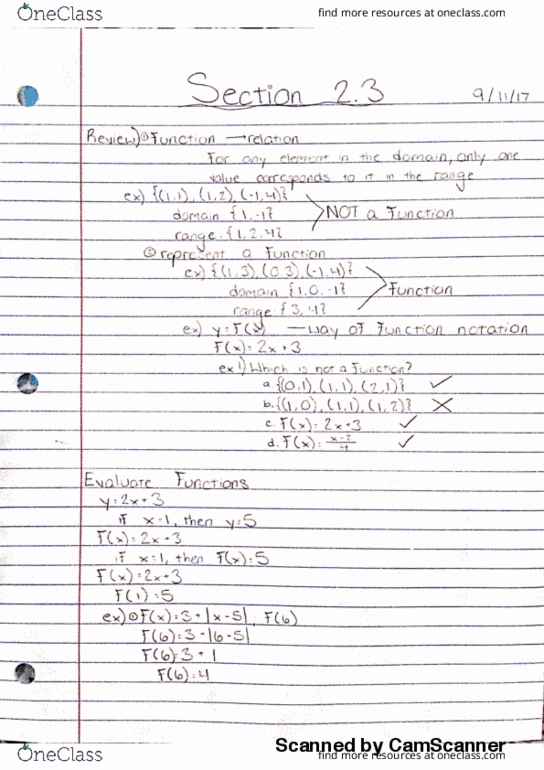 OneClass
find more resources at oneclass.com
Section 2.3
9/11/17
Review) ① Function → relation
For any element in the domain, only one
value corresponds to it in the range
ex) {(1,1), (1,2), (-1,4)}
domain {1,-1}
NOT a Function
range: {1,2,4}
② represent a Function
ex) {(1,3), (0,3), (-1,4)}
domain: {1,0,-1}
Function
range: {3,4}
ex) y=F(x) — way of Function notation
F(x)=2x+3
ex1) Which is not a Function?
a. {(0,1), (1,1), (2,1)} ✓
b. {(1,0), (1,1), (1,2)} X
c. F(x)=2x+3 ✓
d. F(x)= ✓
Evaluate Functions
y=2x+3
if x=1, then y=5
F(x)=2x+3
if x=1, then F(x)=5
F(x)=2x+3
F(1)=5
ex) ① F(x)=3+|x-5|, F(6)
F(6)=3+|6-5|
F(6)=3+1
F(6)=4
Scanned by CamScanner
OneClass
find more resources at oneclass.com